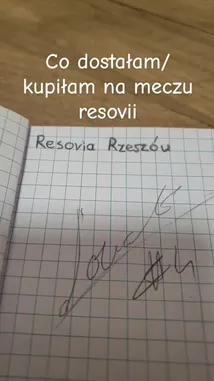 Co dostałam/
kupiłam na meczu
resovii
Resovia Rzeszów
#4